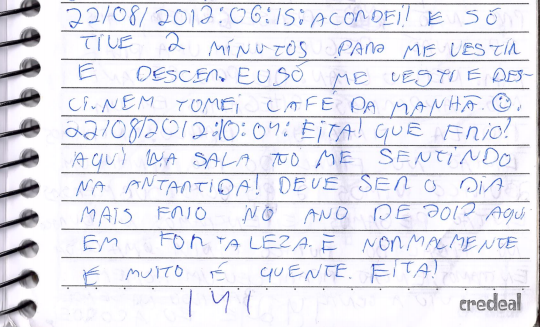 22/08/2012:06:15: ACORDEI! E SÓ
TIVE 2 MINUTOS PARA ME VESTIR
E DESCER. EU SÓ ME VESTI E DES-
CI. NEM TOMEI CAFÉ DA MANHÃ ☺.
22/08/2012:10:04: EITA! QUE FRIO!
AQUI NA SALA TÔ ME SENTINDO
NA ANTARTIDA! DEVE SER O DIA
MAIS FRIO NO ANO DE 2012 AQUI
EM FORTALEZA. E NORMALMENTE
É MUITO É QUENTE. EITA!
141
credeal